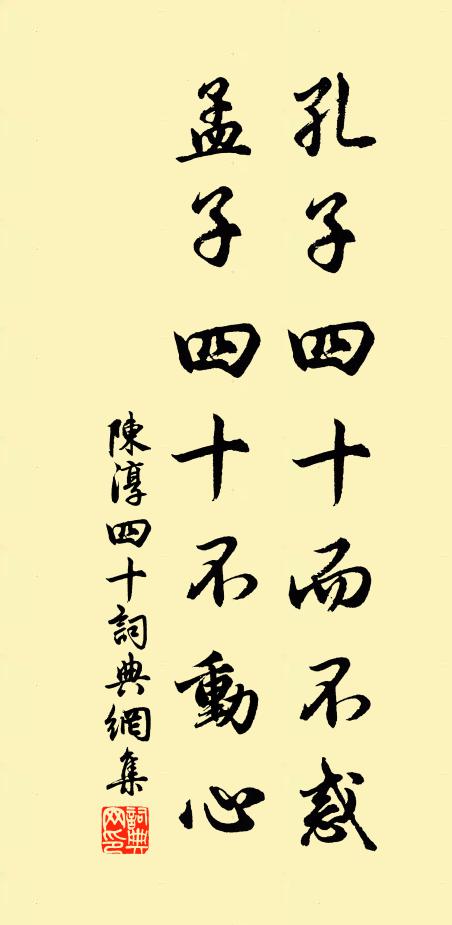 孔子四十而不惑
孟子四十不動心
陳淳四十詞典網集
詞典網印